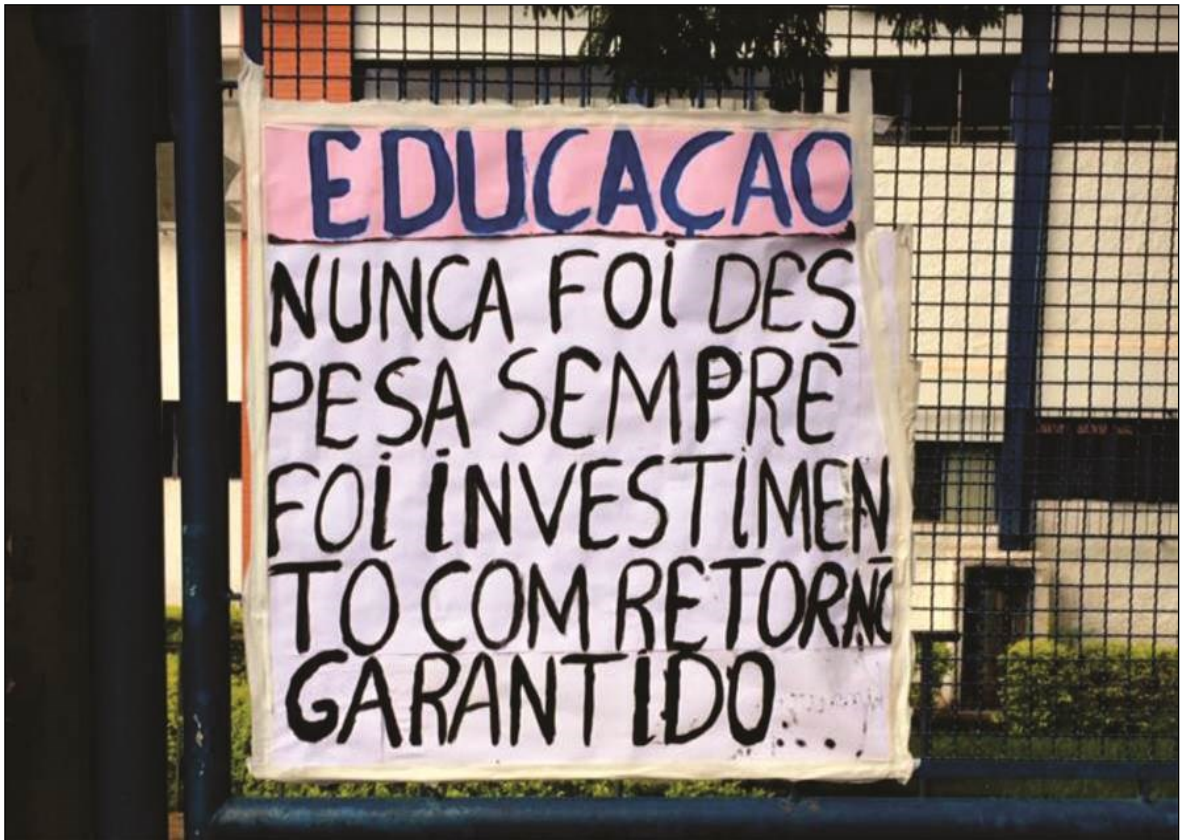 EDUCAÇAO
NUNCA FOI DES
PESA SEMPRE
FOI INVESTIMEN
TO COM RETORNO
GARANTIDO....